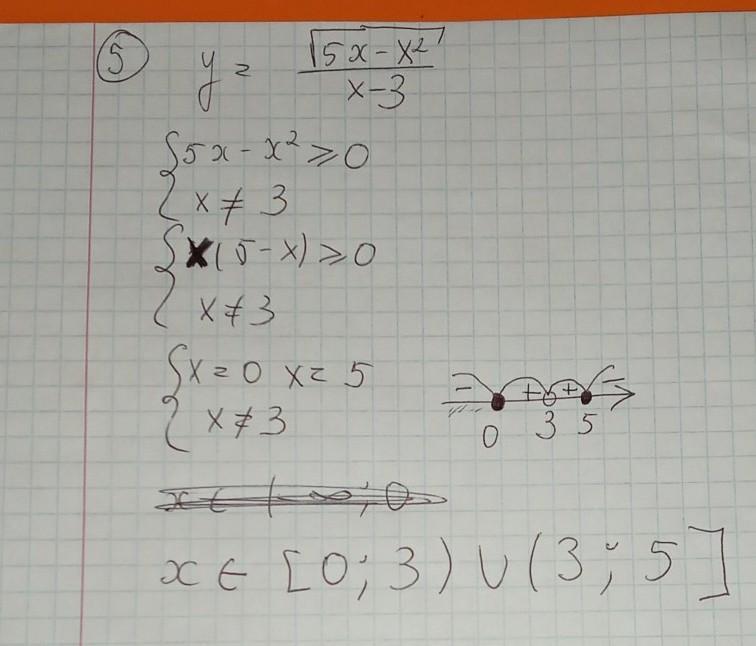 5 y = √(5x - x²) / (x - 3)
{ 5x - x² ⩾ 0
x ≠ 3
{ x(5 - x) ⩾ 0
x ≠ 3
{ x = 0 x = 5
x ≠ 3
- + + -
0 3 5
x ∈ (-∞; 0
x ∈ [0; 3) ∪ (3; 5]